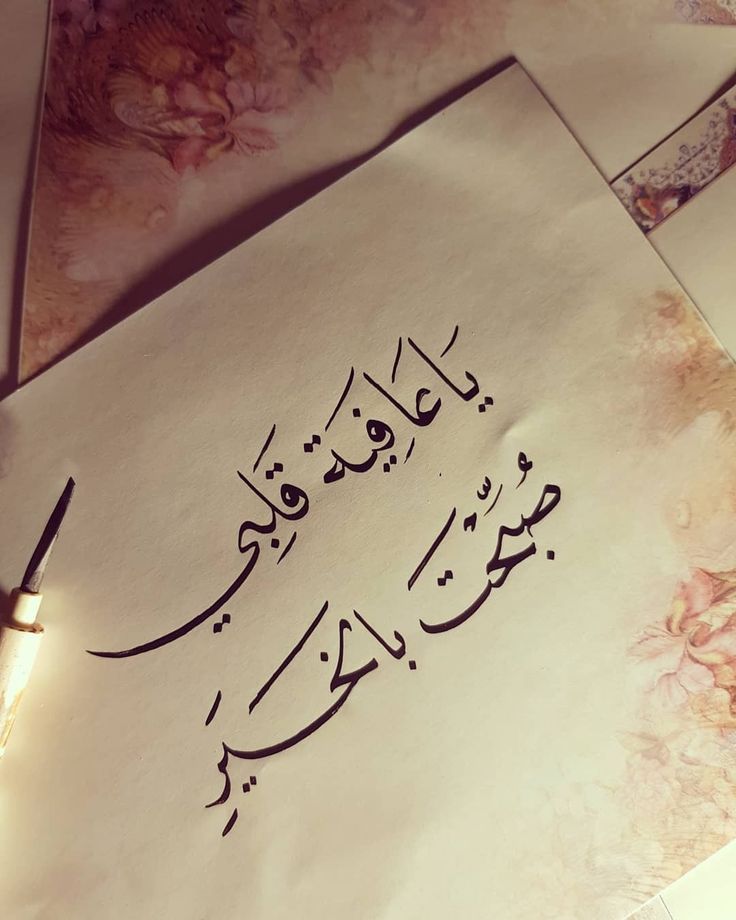 يَا عَافِيَة قَلبِي
صُبِّحْتَ بالخَيرِ